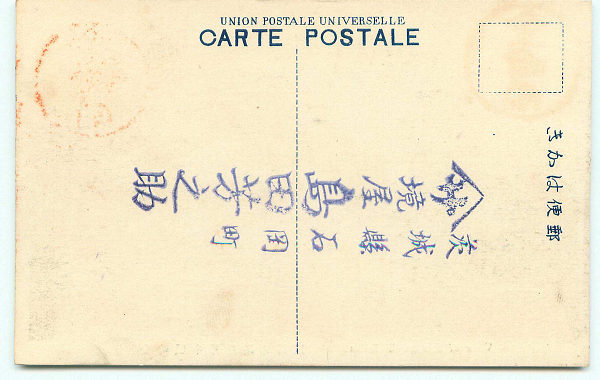 UNION POSTALE UNIVERSELLE
CARTE POSTALE
郵便はかき
茨城縣石岡町
境屋 島田芳之助